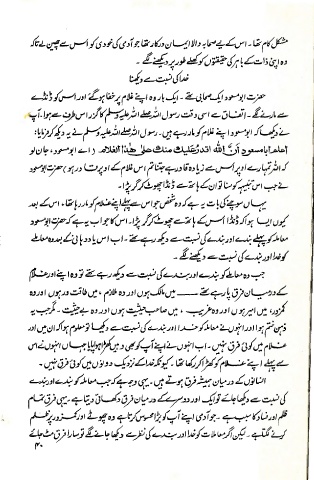 مشکل کام تھا۔ اس کے لیے صحابہ والا ایمان درکار تھا جو آدمی کی خودی کو اس سے چھین لے تاکہ
وہ اپنی ذات کے باہر کی حقیقتوں کو کھلے طور پر دیکھنے لگے۔
خدا کی نسبت سے دیکھنا
حضرت ابو مسعود ایک صحابی تھے۔ ایک بار وہ اپنے غلام پر خفا ہو گئے اور اس کو ڈنڈے
سے مارنے لگے۔ اتفاق سے اسی وقت رسول اللہ صلے اللہ علیہ وسلم کا گزر اس طرف سے ہوا۔ آپ
نے دیکھا کہ ابو مسعود اپنے غلام کو مار رہے ہیں۔ رسول اللہ صلے اللہ علیہ وسلم نے یہ دیکھ کر فرمایا:
اعلم ابا مسعود ان اللہ اقدر علیک منک علی ھذا الغلام (اے ابو مسعود، جان لو
کہ اللہ تمہارے اوپر اس سے زیادہ قادر ہے جتنا تم اس غلام کے اوپر قادر ہو) حضرت ابو مسعود
نے جب اس تنبیہہ کو سنا تو ان کے ہاتھ سے ڈنڈا چھوٹ کر گر پڑا۔
یہاں سوچنے کی بات یہ ہے کہ وہ شخص جو اس سے پہلے اپنے غلام کو مار رہا تھا، اس کے بعد
کیوں ایسا ہوا کہ ڈنڈا اس کے ہاتھ سے چھوٹ کر گر پڑا۔ اس کا جواب یہ ہے کہ حضرت ابو مسعود
معاملہ کو پہلے بندے اور بندے کی نسبت سے دیکھ رہے تھے۔ اب اس یاد دہانی کے بعد وہ معاملے
کو خدا اور بندے کی نسبت سے دیکھنے لگے۔
جب وہ معاملہ کو بندے اور بندے کی نسبت سے دیکھ رہے تھے تو وہ اپنے اور غلام
کے درمیان فرق پا رہے تھے ـــــ میں مالک ہوں اور وہ ملازم، میں طاقت ور ہوں اور وہ
کمزور، میں امیر ہوں اور وہ غریب، میں صاحب حیثیت ہوں اور وہ بے حیثیت۔ مگر جب یہ
ذہن ختم ہوا اور انہوں نے معاملہ کو خدا اور بندے کی نسبت سے دیکھا تو معلوم ہوا کہ ان میں اور
غلام میں کوئی فرق نہیں۔ اب انہوں نے اپنے آپ کو بھی وہیں کھڑا ہوا پایا جہاں انہوں نے اس
سے پہلے اپنے غلام کو کھڑا کر رکھا تھا۔ کیونکہ خدا کے نزدیک دونوں میں کوئی فرق نہیں۔
انسانوں کے درمیان ہمیشہ فرق ہوتے ہیں۔ یہی وجہ ہے کہ جب معاملہ کو بندے اور بندے
کی نسبت سے دیکھا جائے تو ایک اور دوسرے کے درمیان فرق دکھائی دیتا ہے۔ یہی فرق تمام
ظلم اور فساد کا سبب ہے۔ جو آدمی اپنے آپ کو بڑا محسوس کرتا ہے وہ چھوٹے اور کمزور پر ظلم
کرنے لگتا ہے۔ لیکن اگر معاملات کو خدا اور بندے کی نظر سے دیکھا جانے لگے تو سارا فرق مٹ جائے
۴۰